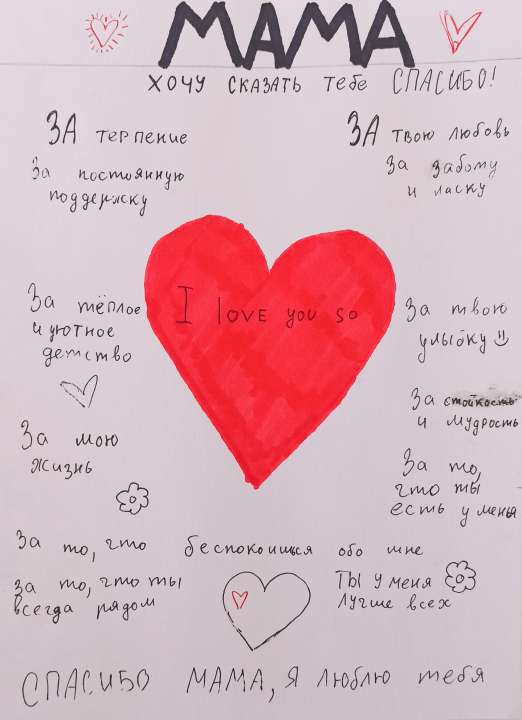 МАМА
ХОЧУ СКАЗАТЬ тебе СПАСИБО!
ЗА терпение
За постоянную
поддержку
ЗА твою любовь
За заботу
и ласку
I love you so
За тёплое
и уютное
детство
За твою
улыбку
За мою
жизнь
За стойкость
и мудрость
За то,
что ты
есть у меня
За то, что беспокоишься обо мне
За то, что ты
всегда рядом
Ты у меня
лучше всех
СПАСИБО МАМА, Я люблю тебя